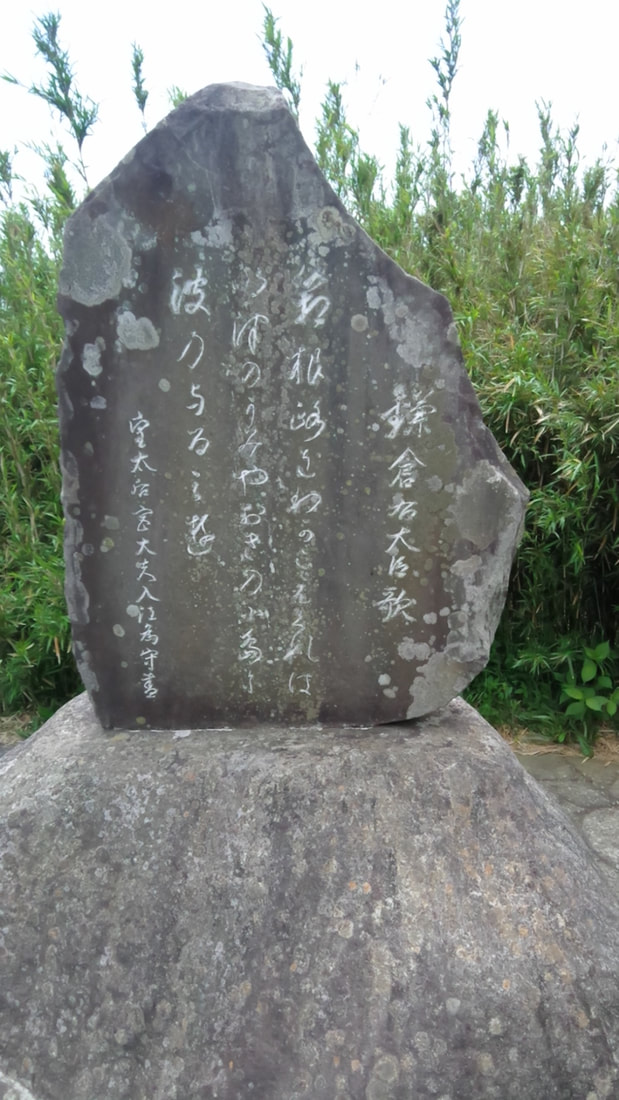 鎌倉右大臣歌
箱根路をわかこえくれは
伊豆のうみやおきの小島に
波のよるみゆ
皇太后宮大夫入江為守書